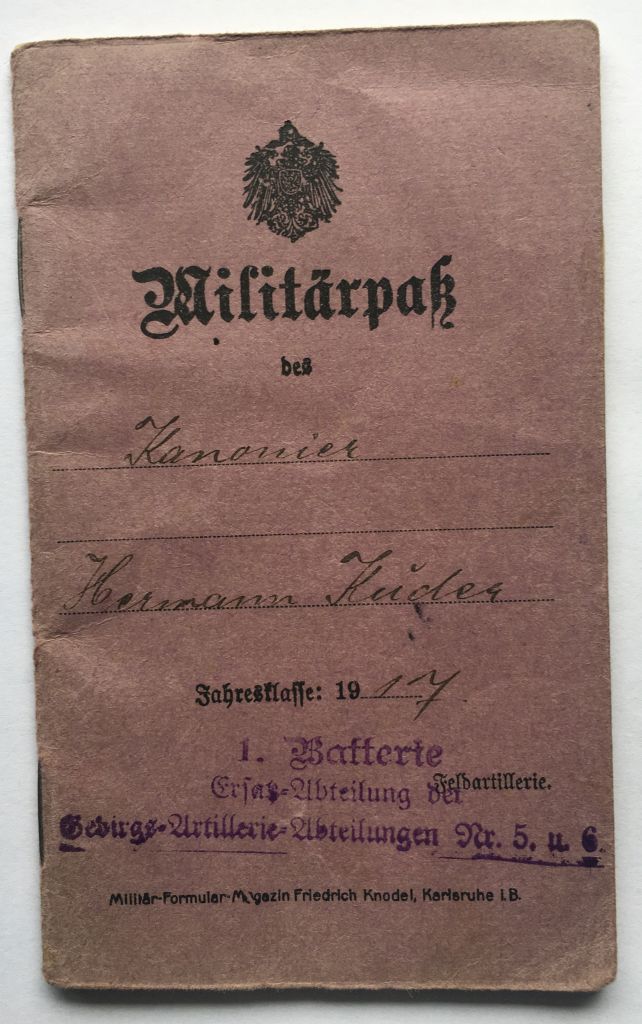 Militärpaß
des
Kanonier
Hermann Kuder
Jahresklasse: 1917
1. Batterie
Feldartillerie.
Ersatz-Abteilung der
Gebirgs-Artillerie-Abteilungen Nr. 5. u. 6.
Militär-Formular-Magazin Friedrich Knodel, Karlsruhe i.B.